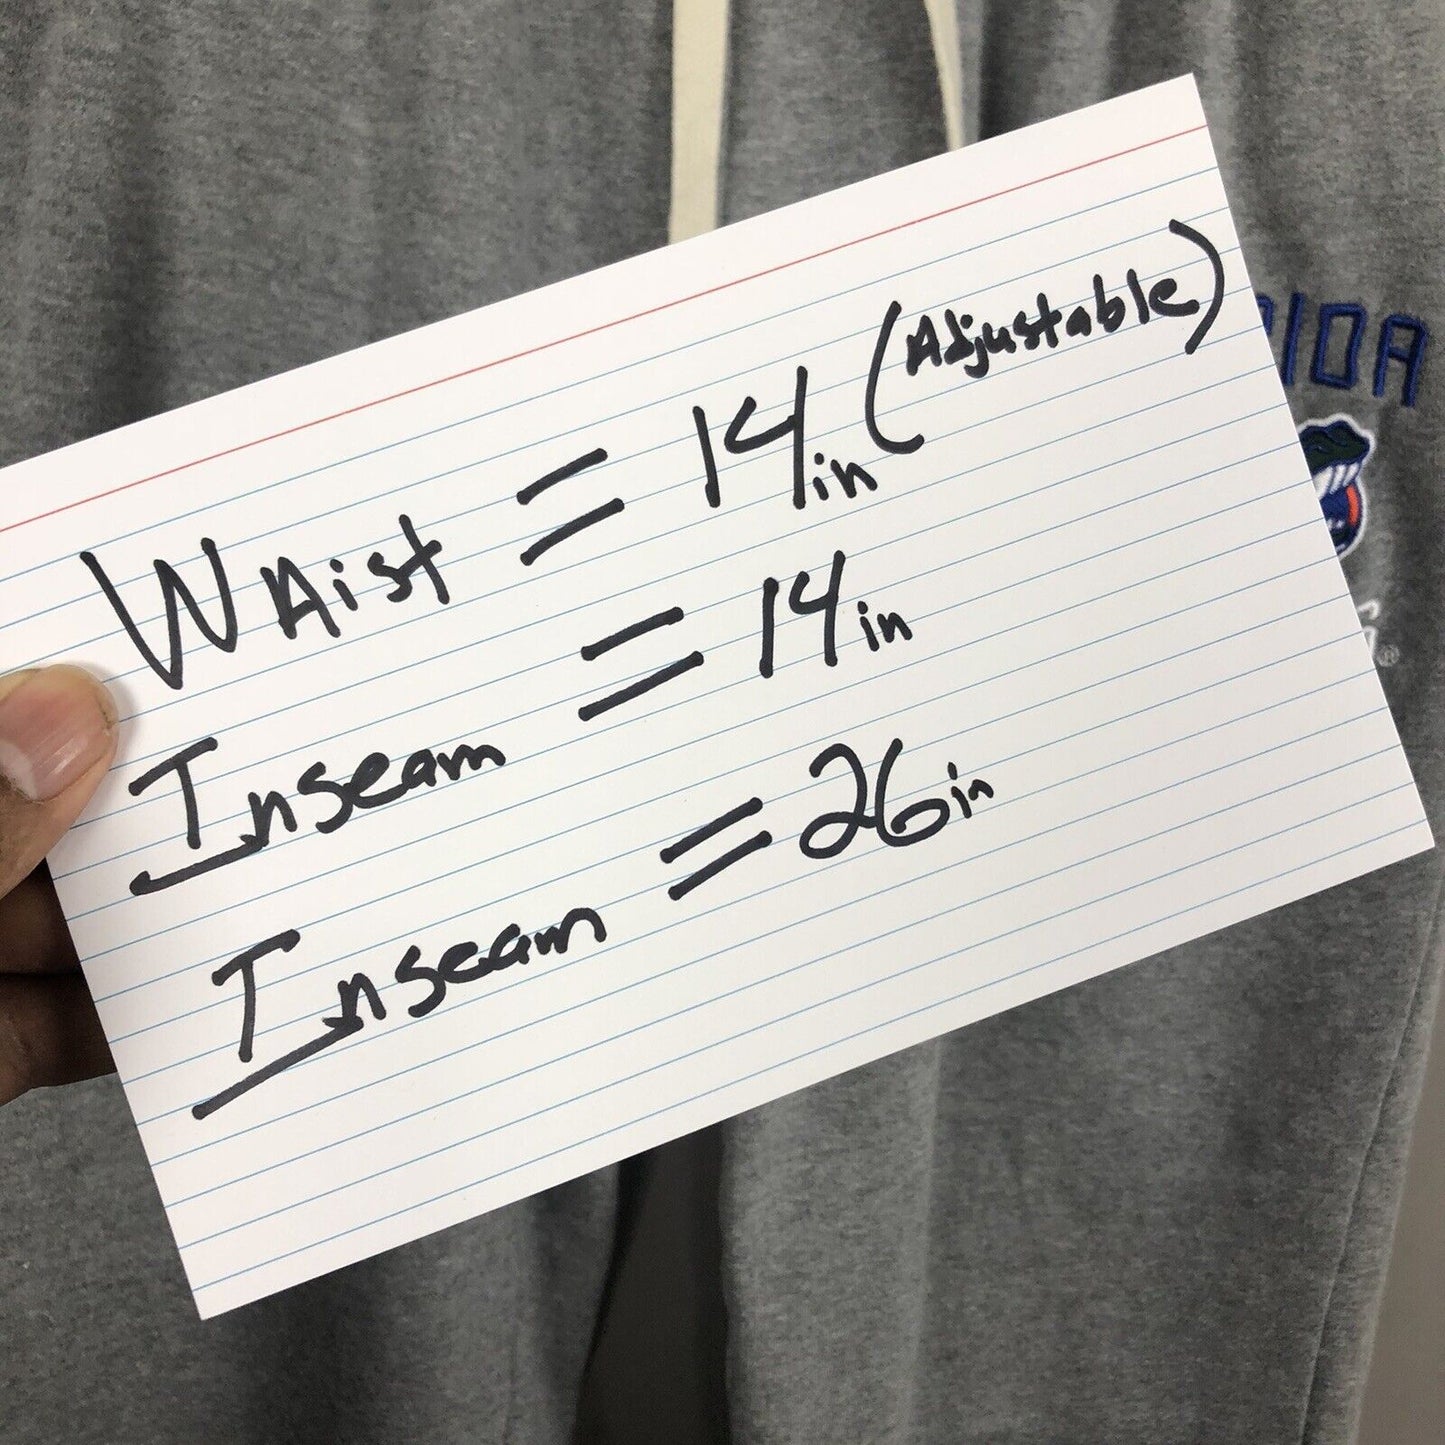 Waist = 14in (Adjustable)
Inseam = 14in
Inseam = 26in
IDA
®